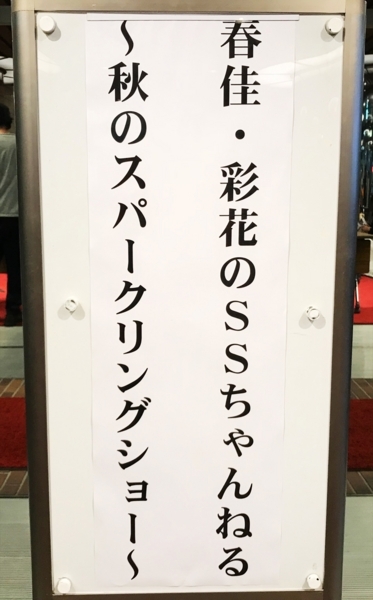 春佳・彩花のSSちゃんねる
～秋のスパークリングショー～